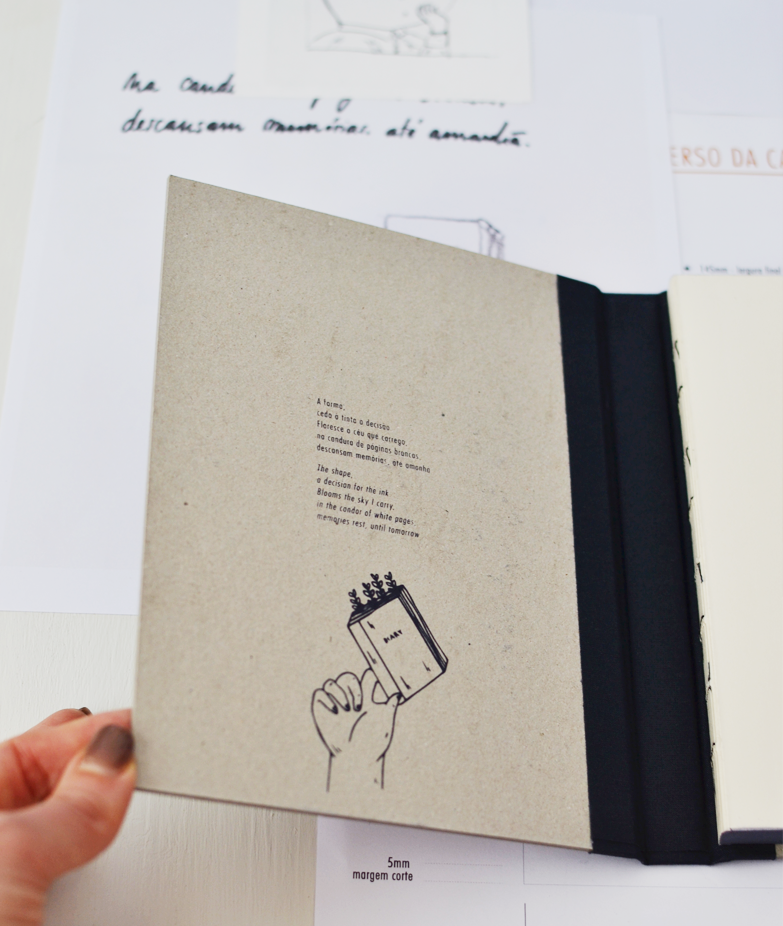 na
descansam memórias. até amanhã.
ERSO DA CA
A forma,
ceda à tinta a decisão
Floresce o céu que carrego.
na candura de páginas brancas.
descansam memórias, até amanhã
The shape,
a decision for the ink
Blooms the sky I carry.
in the candor of white pages
memories rest, until tomorrow
DIARY
5mm
margem corte